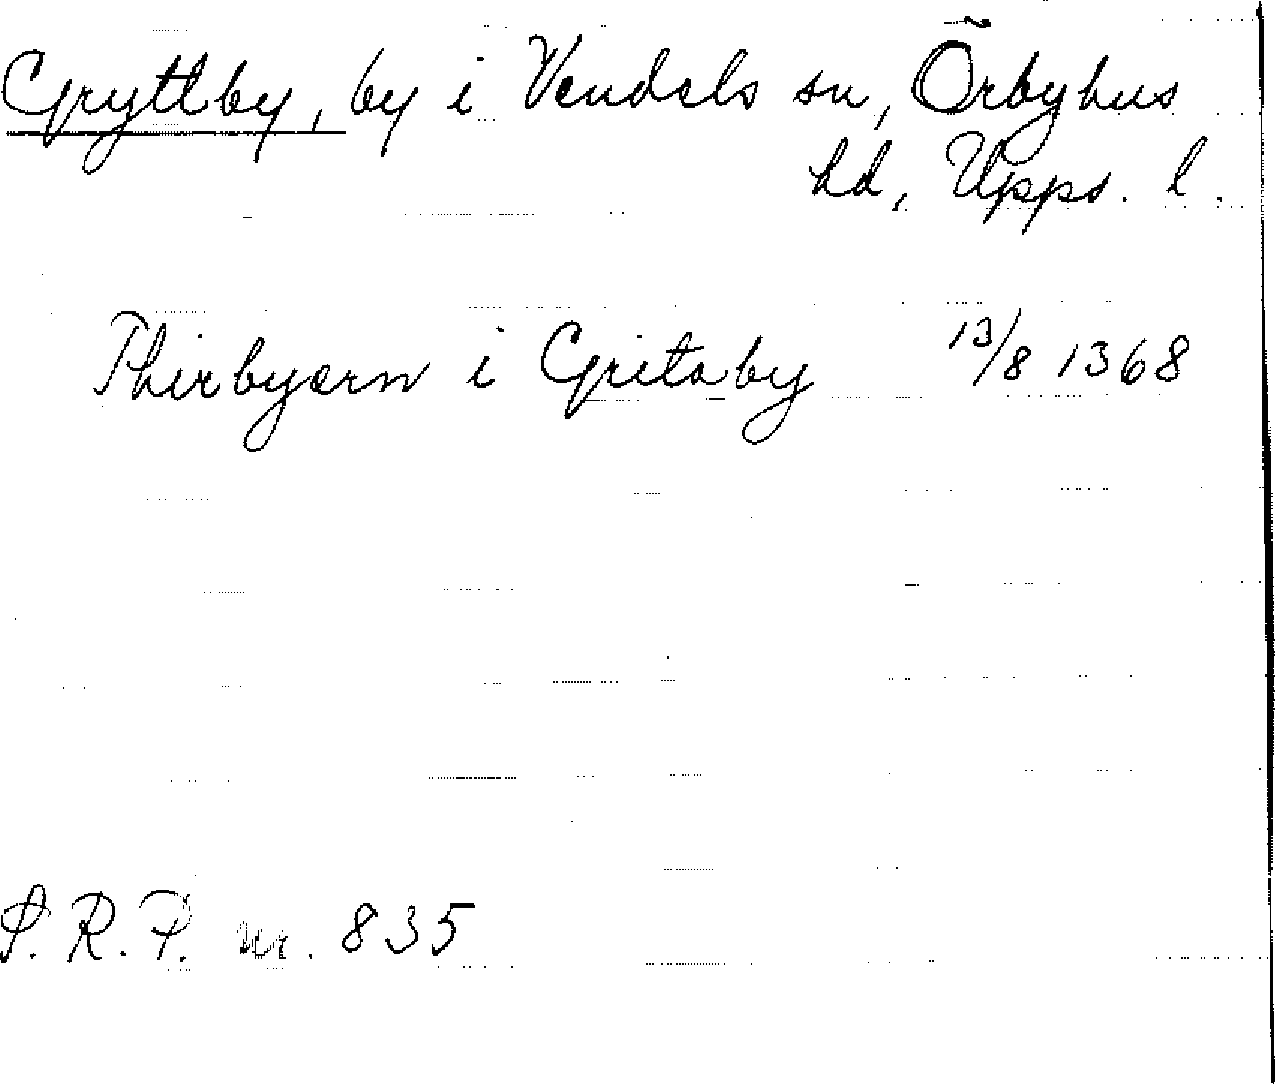 Gryttby, by i Vendels sn, Örbyhus
hd, Upps. l.
Thirbyærn i Gritaby 13/8 1368
S.R.P. nr. 835